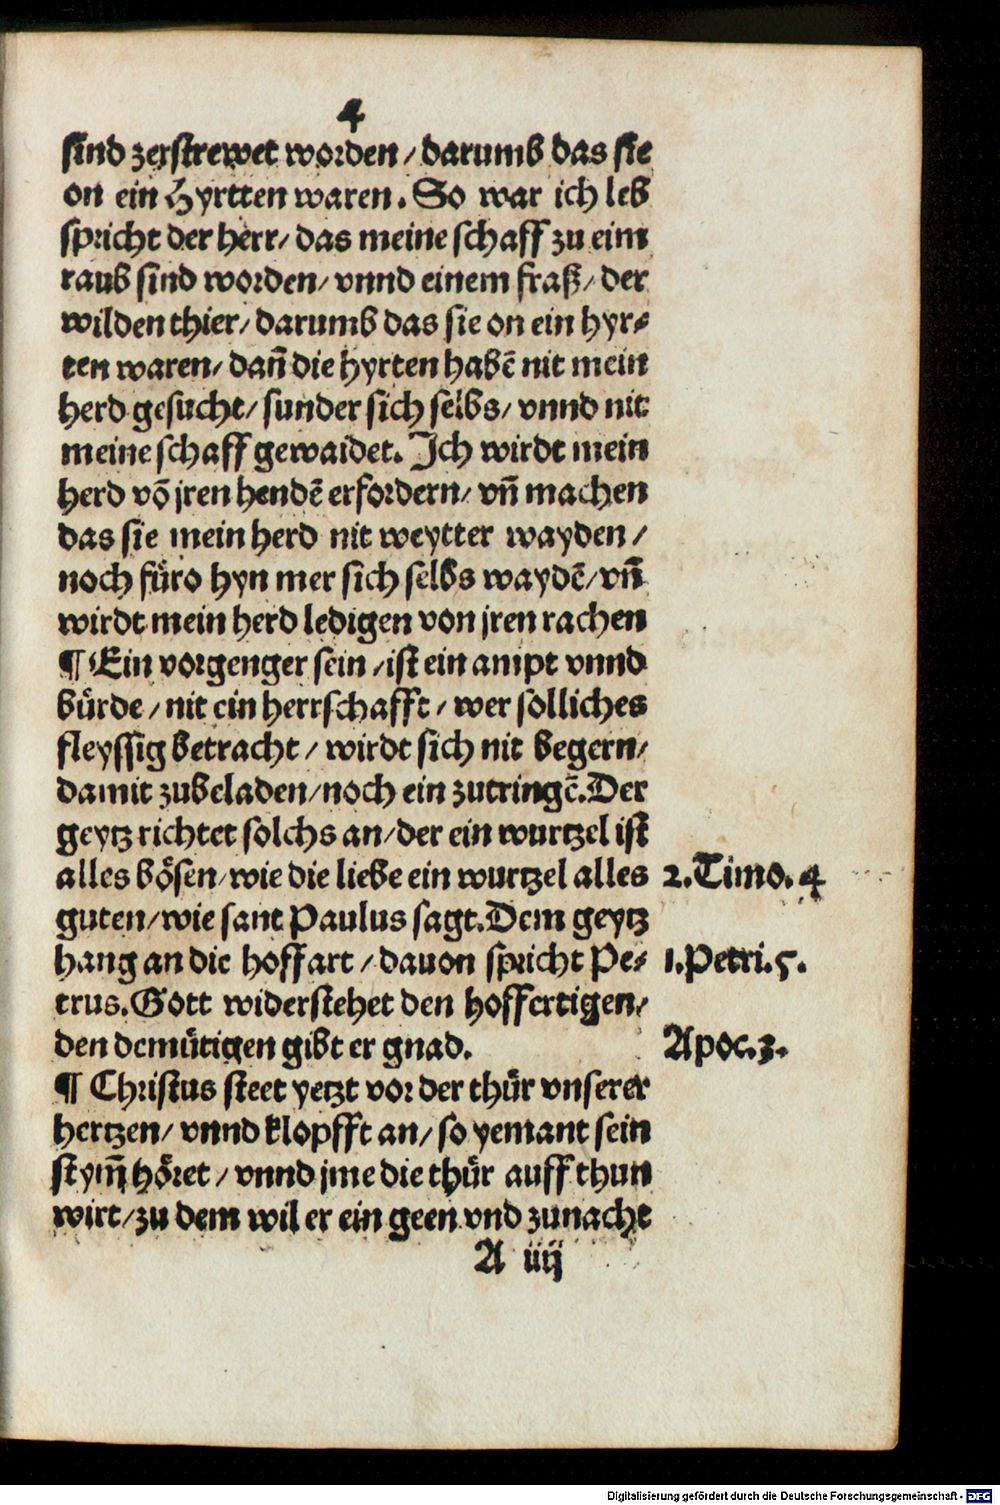 4
sind zerstrewet worden / darumb das sie
on ein Hyrtten waren. So war ich leb
spricht der herr / das meine schaff zu eim
raub sind worden / vnnd einem fraß / der
wilden thier / darumb das sie on ein hyr⸗
ten waren / dañ die hyrten habẽ nit mein
herd gesucht / sunder sich selbs / vnnd nit
meine schaff gewaidet. Ich wirdt mein
herd võ jren hendẽ erfordern / vñ machen
das sie mein herd nit weytter wayden /
noch fůro hyn mer sich selbs waydẽ / vñ
wirdt mein herd ledigen von jren rachen
¶ Ein vorgenger sein / ist ein ampt vnnd
bürde / nit ein herrschafft / wer solliches
fleyssig betracht / wirdt sich nit begern /
damit zubeladen / noch ein zutringẽ. Der
geytz richtet solchs an / der ein wurtzel ist
alles bösen / wie die liebe ein wurtzel alles 2. Timo. 4
guten / wie sant Paulus sagt. Dem geytz
hang an die hoffart / dauon spricht Pe⸗ 1. Petri. 5.
trus. Gott widerstehet den hoffertigen /
den demütigen gibt er gnad. Apoc. 3.
¶ Christus steet yetzt vor der thür vnserer
hertzen / vnnd klopfft an / so yemant sein
stym̃ höret / vnnd jme die thür auff thun
wirt / zu dem wil er ein geen vnd zunacht
A iiij
Digitalisierung gefördert durch die Deutsche Forschungsgemeinschaft - DFG